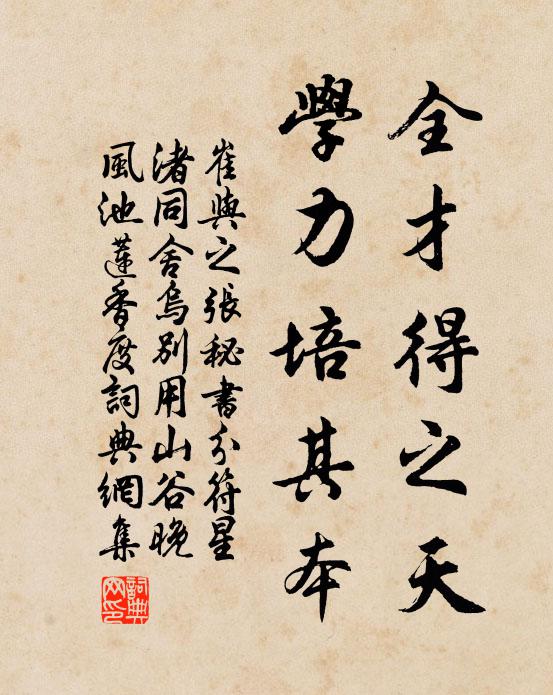 全才得之天
學力培其本
崔與之張秘書分符星
渚同舍烏別用山谷晚
風池蓮香度詞典網集
詞典網印